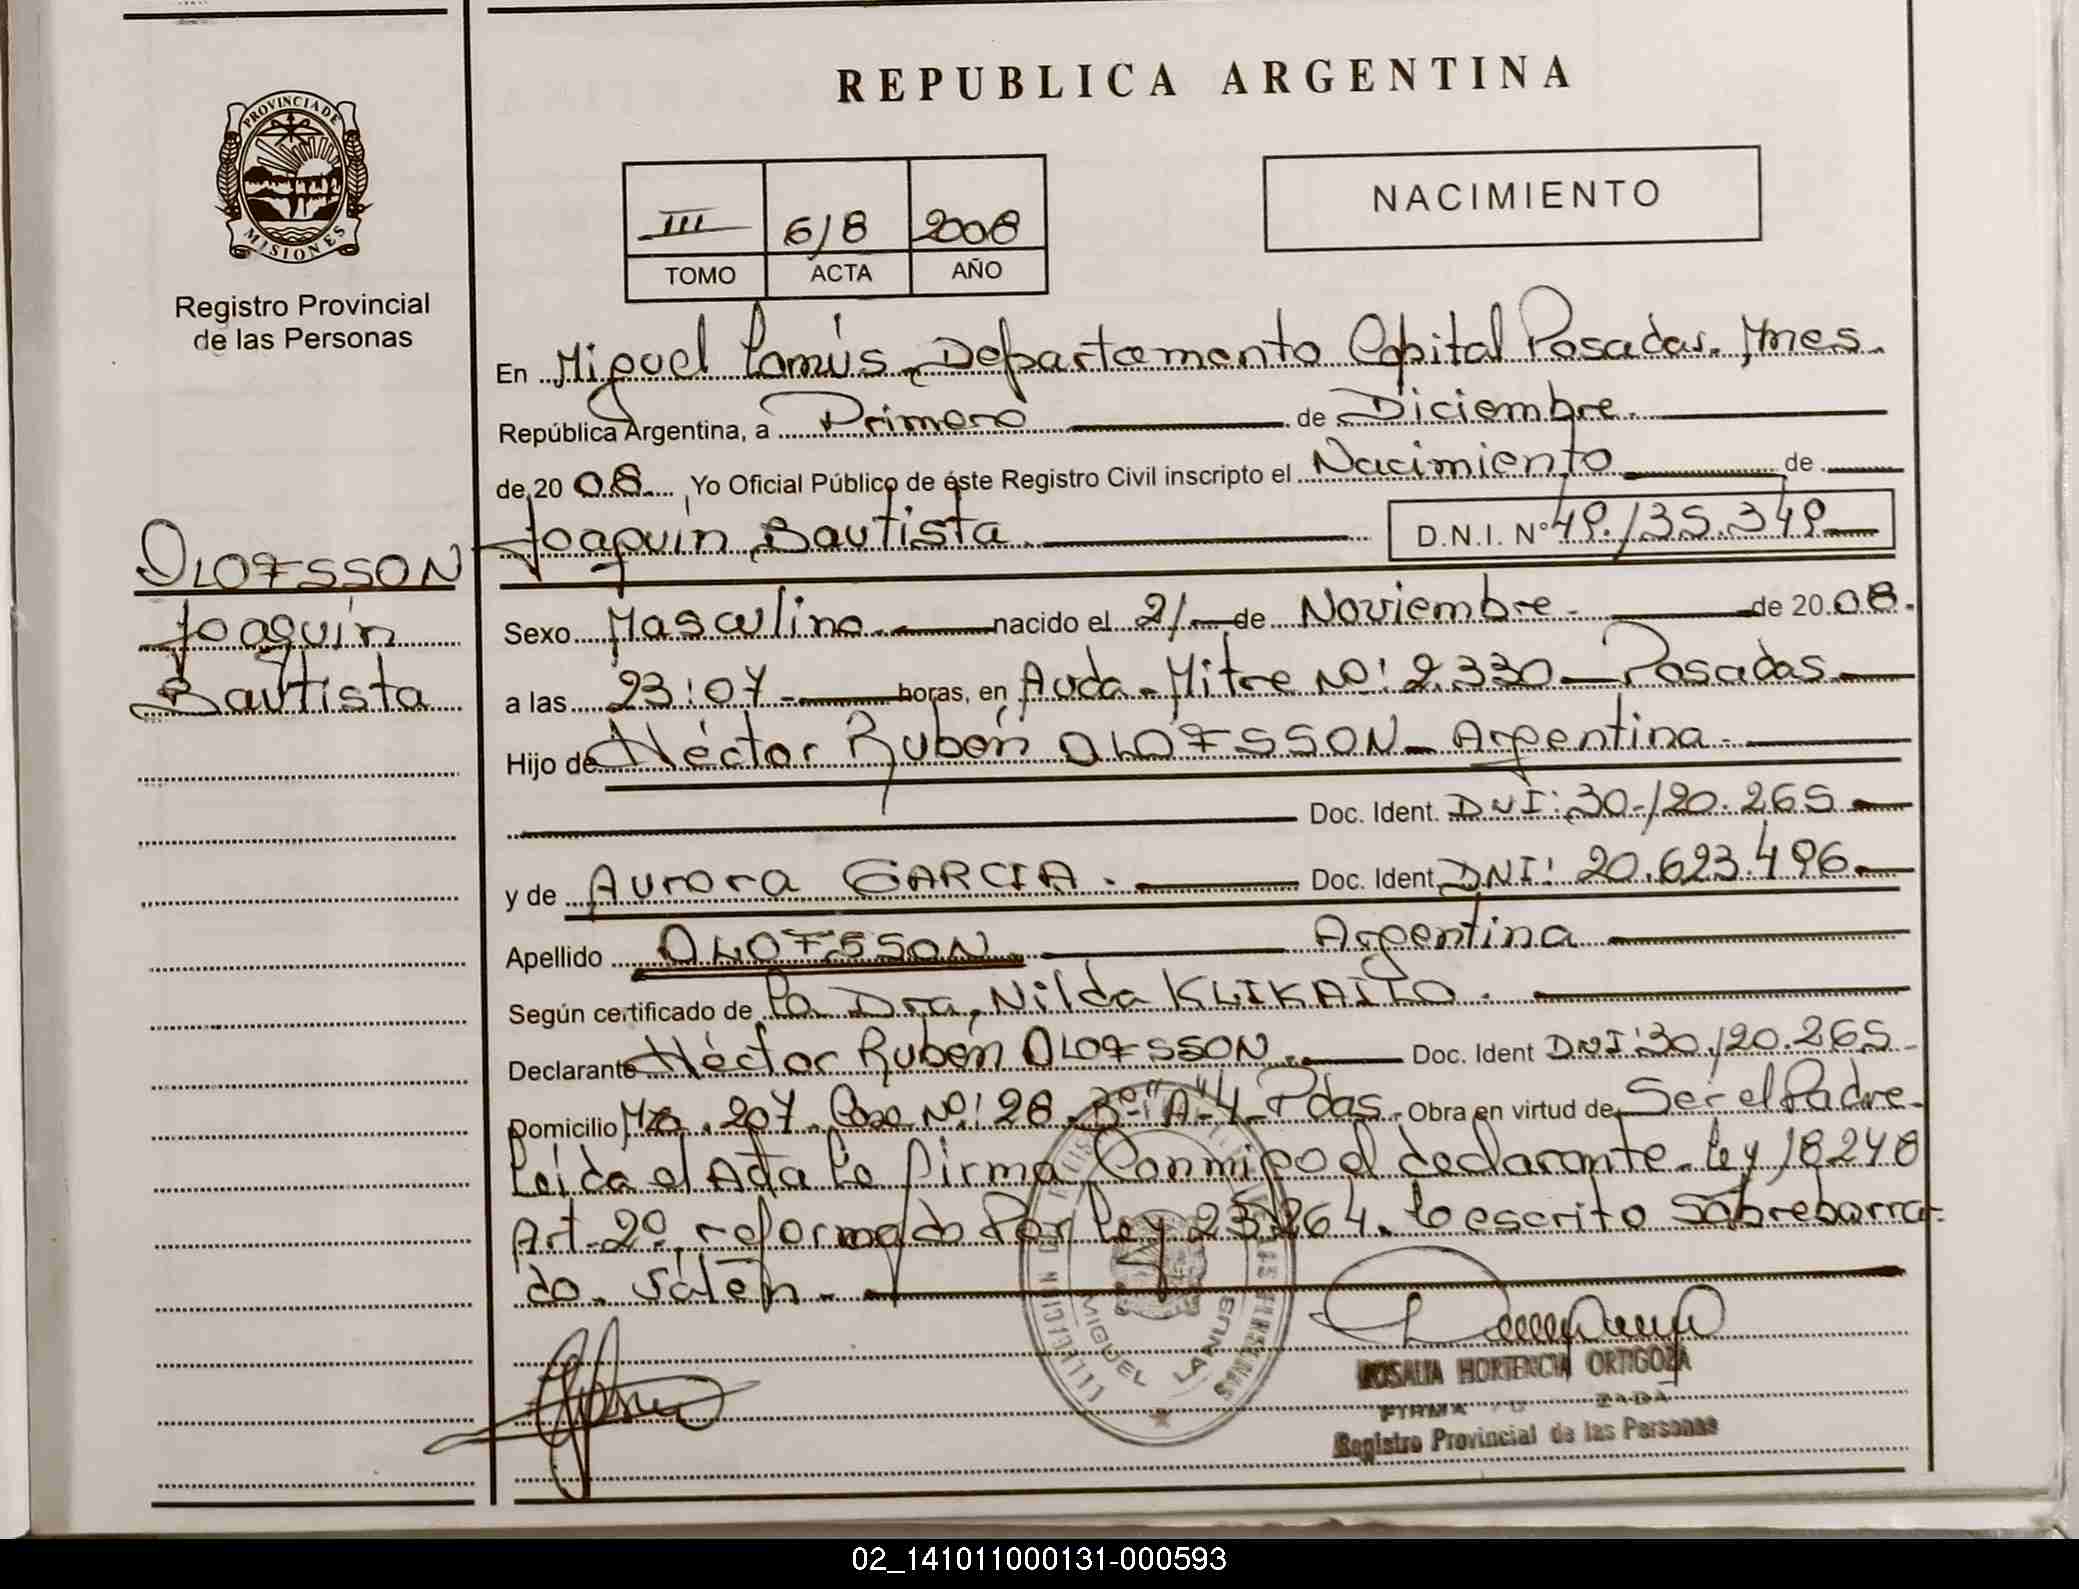 REPUBLICA ARGENTINA
PROVINCIA DE
MISIONES
Registro Provincial
de las Personas
NACIMIENTO
III 618 2008
TOMO ACTA AÑO
En Miguel Lanús - Departamento Capital Posadas. Mnes.
República Argentina, a Primero de Diciembre.
de 2008 Yo Oficial Público de éste Registro Civil inscripto el Nacimiento de
Joaquín Bautista D.N.I. N° 49.135.349
OLOFSSON
Joaquín
Bautista
Sexo Masculino. nacido el 21 de Noviembre. de 2008.
a las 23:07 horas, en Avda. Mitre Nº: 2.330 - Posadas
Hijo de Héctor Rubén OLOFSSON - Argentina.
Doc. Ident. DNI: 30.120.265
y de Aurora GARCIA. Doc. Ident DNI: 20.623.496
Apellido OLOFSSON Argentina
Según certificado de la Dra. Nilda
Declarante Héctor Rubén OLOFSSON. Doc. Ident DNI: 30.120.265
Domicilio Mz. 207 Casa Nº: 28 Bº "A-4 - Pdas. Obra en virtud de Ser el Padre.
Leída el Acta la firma Conmigo el declarante. Ley 18248
Art. 2º reformado Por Ley 23.264. Lo escrito Sobreborra-
do. Valen.
MIGUEL LANUS
ROSALIA HORTENCIA ORTIGOZA
FIRMA
Registro Provincial de las Personas
02_141011000131-000593